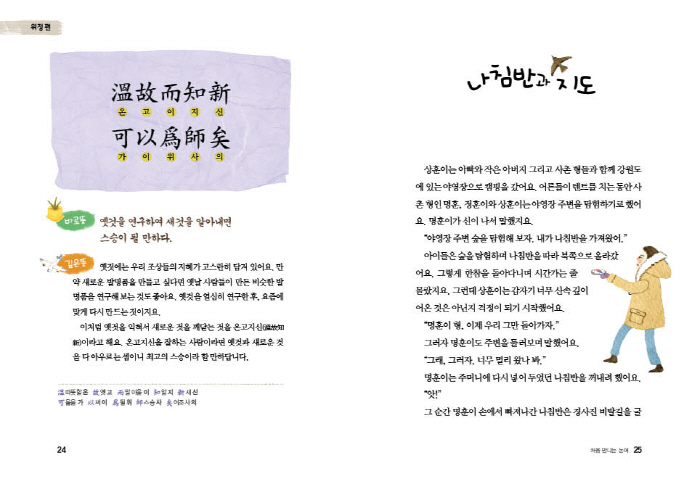 위정편
溫故而知新
온고이지신
可以爲師矣
가이위사의
바로뜻
옛것을 연구하여 새것을 알아내면
스승이 될 만하다.
깊은뜻
옛것에는 우리 조상들의 지혜가 고스란히 담겨 있어요. 만
약 새로운 발명품을 만들고 싶다면 옛날 사람들이 만든 비슷한 발
명품을 연구해 보는 것도 좋아요. 옛것을 열심히 연구한 후, 요즘에
맞게 다시 만드는 것이지요.
이처럼 옛것을 익혀서 새로운 것을 깨닫는 것을 온고지신(溫故知
新)이라고 해요. 온고지신을 잘하는 사람이라면 옛것과 새로운 것
을 다 아우르는 셈이니 최고의 스승이라 할 만하답니다.
溫 따뜻할 온 故 옛 고 而 말 이을 이 知 알 지 新 새 신
可 옳을 가 以 써 이 爲 될 위 師 스승 사 矣 어조사 의
24
나침반과 지도
상훈이는 아빠와 작은 아버지 그리고 사촌 형들과 함께 강원도
에 있는 야영장으로 캠핑을 갔어요. 어른들이 텐트를 치는 동안 사
촌 형인 명훈, 정훈이와 상훈이는 야영장 주변을 탐험하기로 했어
요. 명훈이가 신이 나서 말했지요.
“야영장 주변 숲을 탐험해 보자. 내가 나침반을 가져왔어.”
아이들은 숲을 탐험하며 나침반을 따라 북쪽으로 올라갔
어요. 그렇게 한참을 돌아다니며 시간 가는 줄
몰랐지요. 그런데 상훈이는 갑자기 너무 산속 깊이
들어온 것은 아닌지 걱정이 되기 시작했어요.
“명훈이 형, 이제 우리 그만 돌아가자.”
그러자 명훈이도 주변을 둘러보며 말했어요.
“그래, 그러자. 너무 멀리 왔나 봐.”
명훈이는 주머니에 다시 넣어 두었던 나침반을 꺼내려 했어요.
“앗!”
그 순간 명훈이 손에서 빠져나간 나침반은 경사진 비탈길을 굴
처음 만나는 논어 25